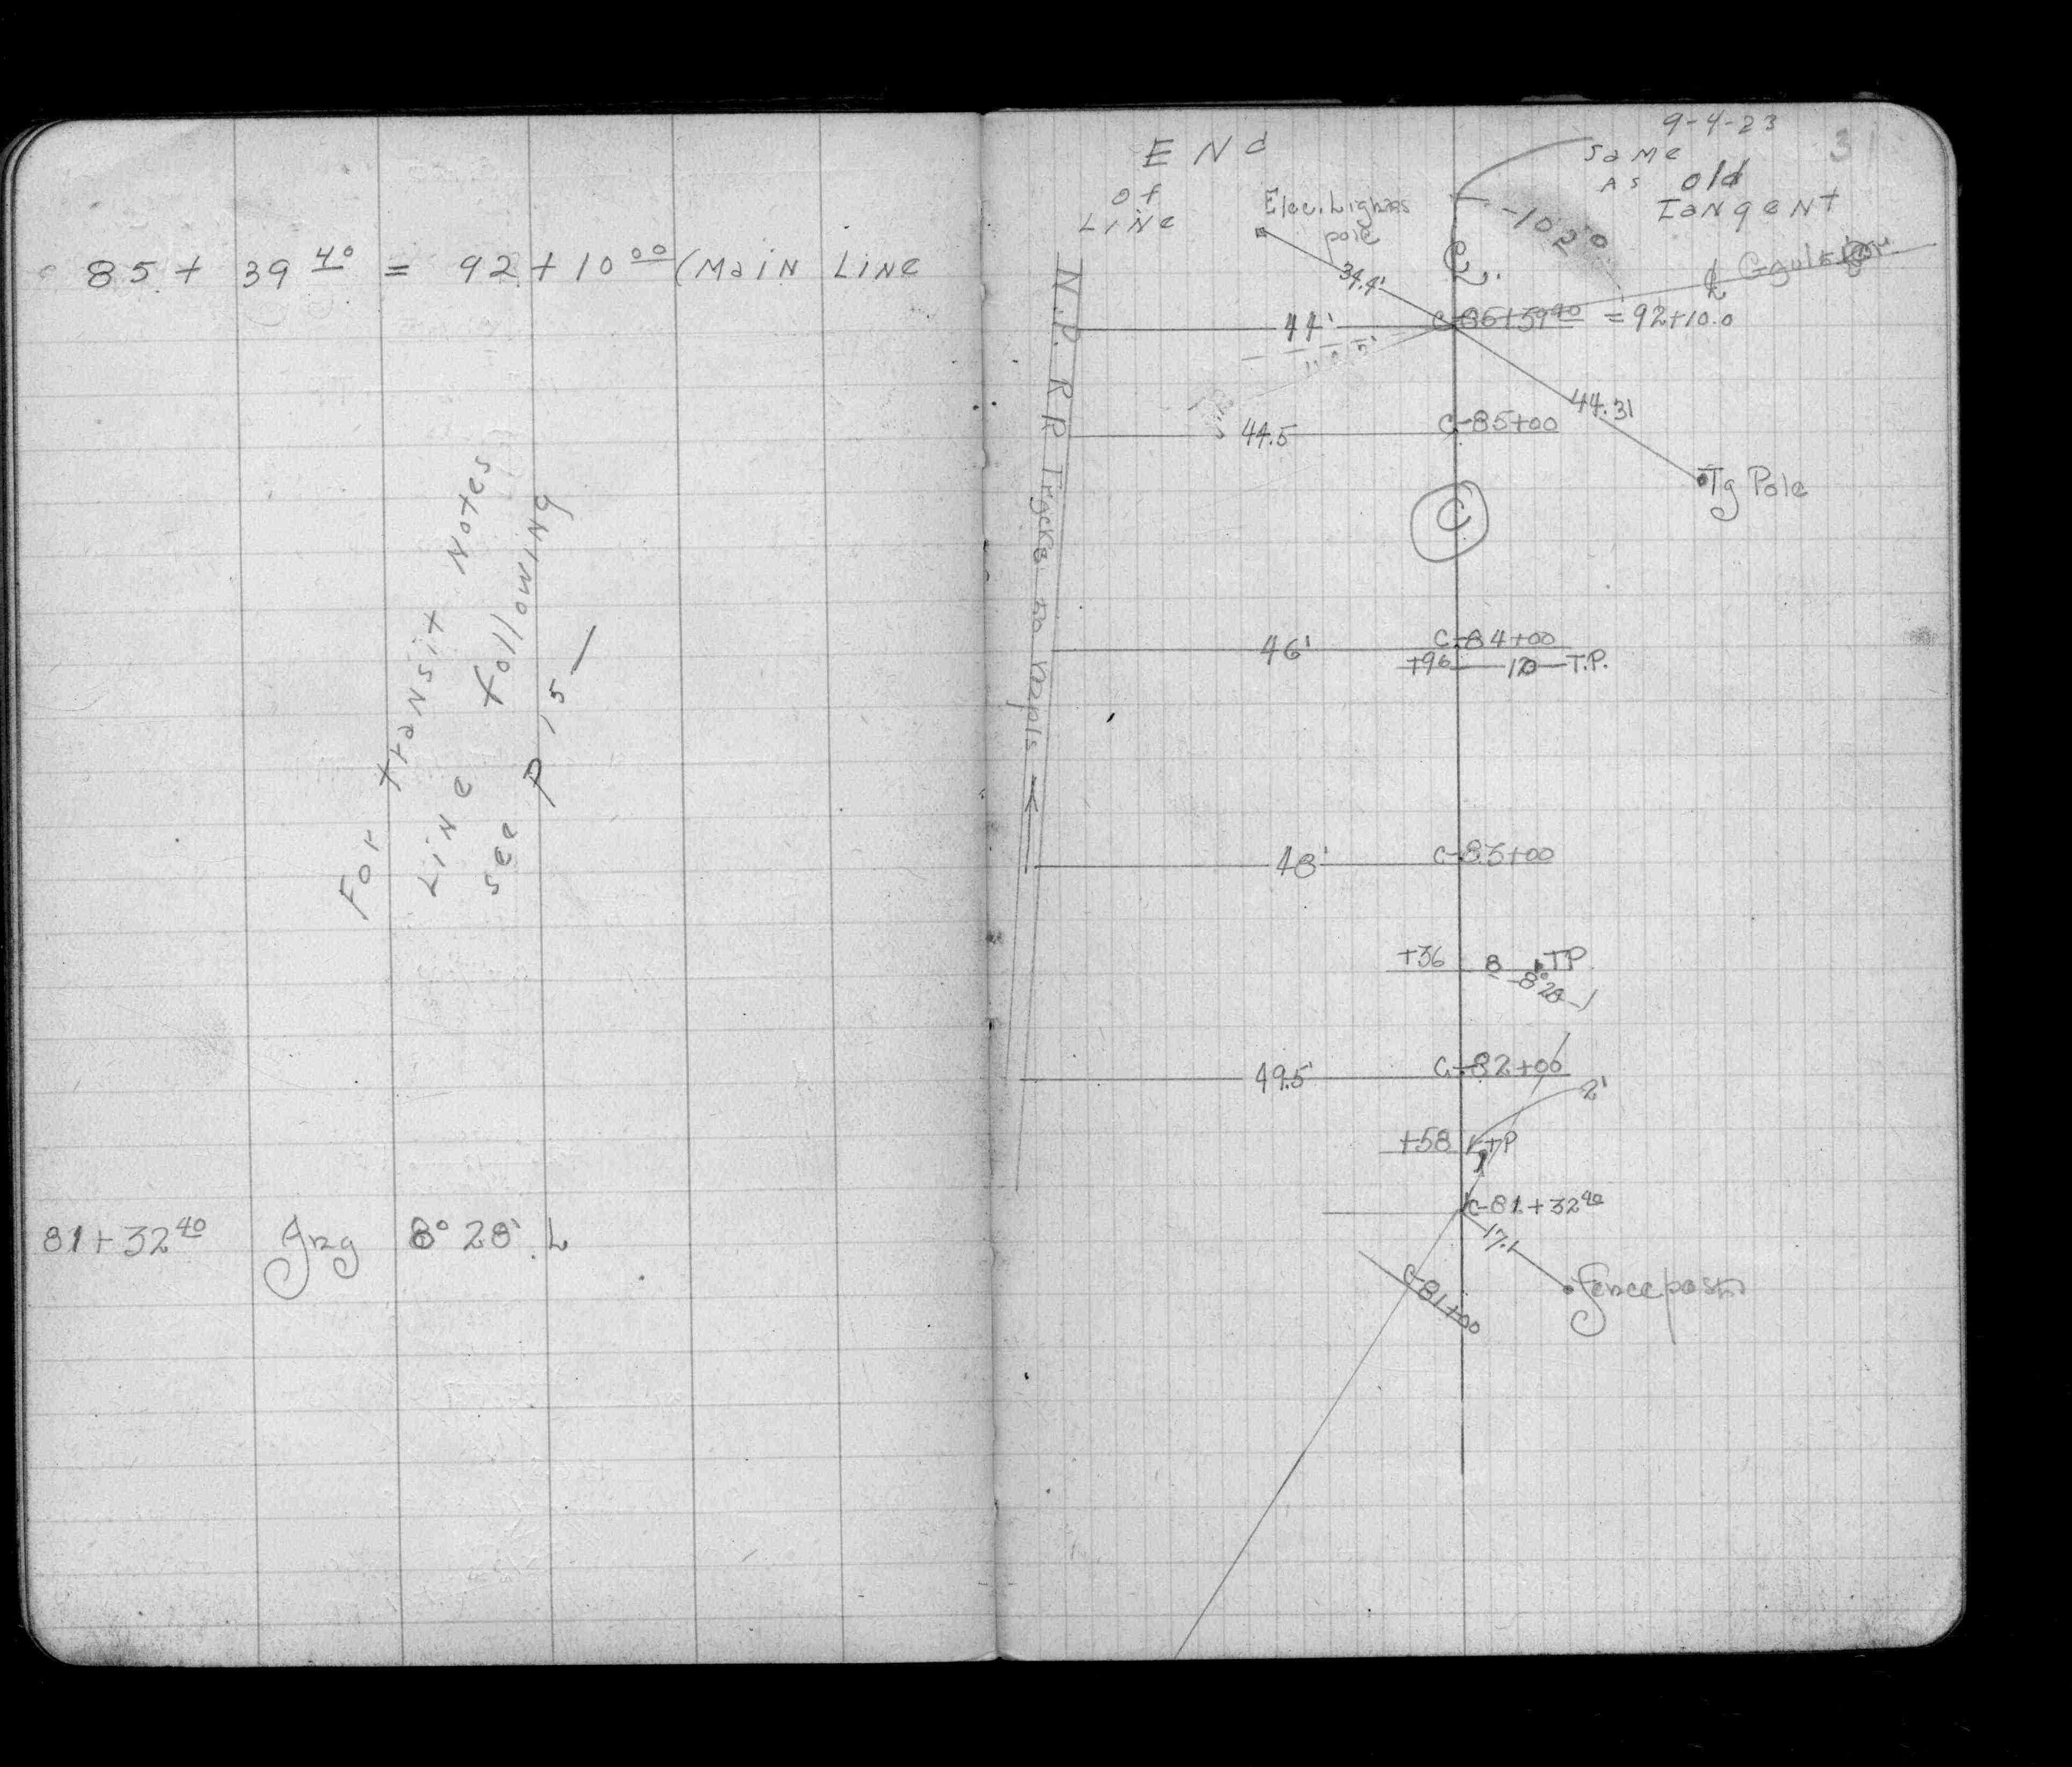 85 + 39 40 = 92 + 10 00 (Main Line
For transit Notes
Line following
see P 15 —
81+32 40 Ang 8° 28' L
9-4-23
31
End
of
Line
same
as old
tangent
Elec. Light
pole
34.4'
-102°0
44'
= 92+10.0
N.P. R R Tracks to Mpls
44.5
C-85+00
44.31
Tg Pole
C
46'
C-84+00
+96 12 T.P.
48'
C-83+00
+36 8 TP
8°28
49.5'
C-82+00
2'
+58 TP
C-81+32 40
17.1
C-81+00
Fence post